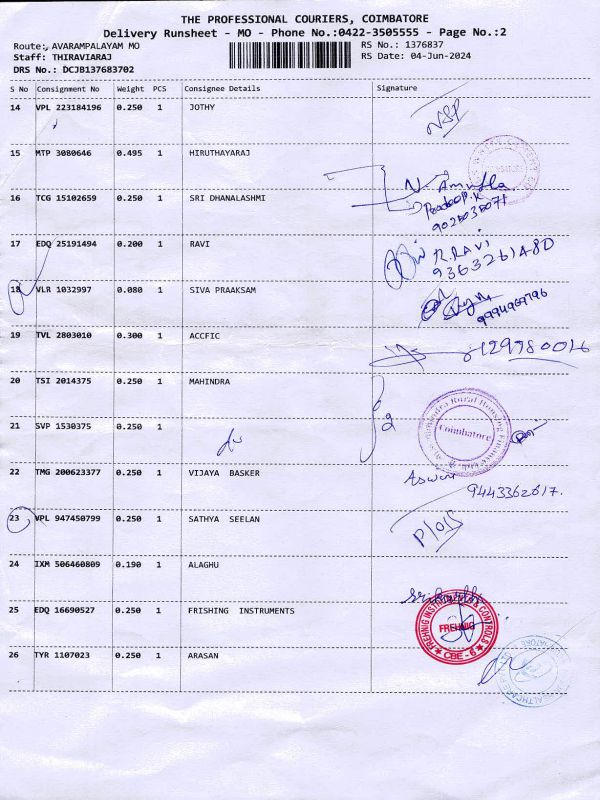 THE PROFESSIONAL COURIERS, COIMBATORE
Delivery Runsheet - MO - Phone No.:0422-3505555 - Page No.:2
Route: AVARAMPALAYAM MO RS No.: 1376837
Staff: THIRAVIARAJ RS Date: 04-Jun-2024
DRS No.: DCJB137683702
S No Consignment No Weight PCS Consignee Details Signature
14 VPL 223184196 0.250 1 JOTHY
15 MTP 3080646 0.495 1 HIRUTHAYARAJ
N. Amutha
16 TCG 15102659 0.250 1 SRI DHANALASHMI
Pradeep.K
17 EDQ 25191494 0.200 1 RAVI R.RAVI
9363261480
18 VLR 1032997 0.080 1 SIVA PRAAKSAM 9994969796
19 TVL 2803010 0.300 1 ACCFIC
20 TSI 2014375 0.250 1 MAHINDRA 2
Coimbatore
21 SVP 1530375 0.250 1
22 TMG 200623377 0.250 1 VIJAYA BASKER
9443362617.
23 VPL 947450799 0.250 1 SATHYA SEELAN
24 IXM 506460809 0.190 1 ALAGHU
25 EDQ 16690527 0.250 1 FRISHING INSTRUMENTS
FREHNIG INSTRUMENTS & CONTROLS
FREHNIG
CBE - 6
26 TYR 1107023 0.250 1 ARASAN